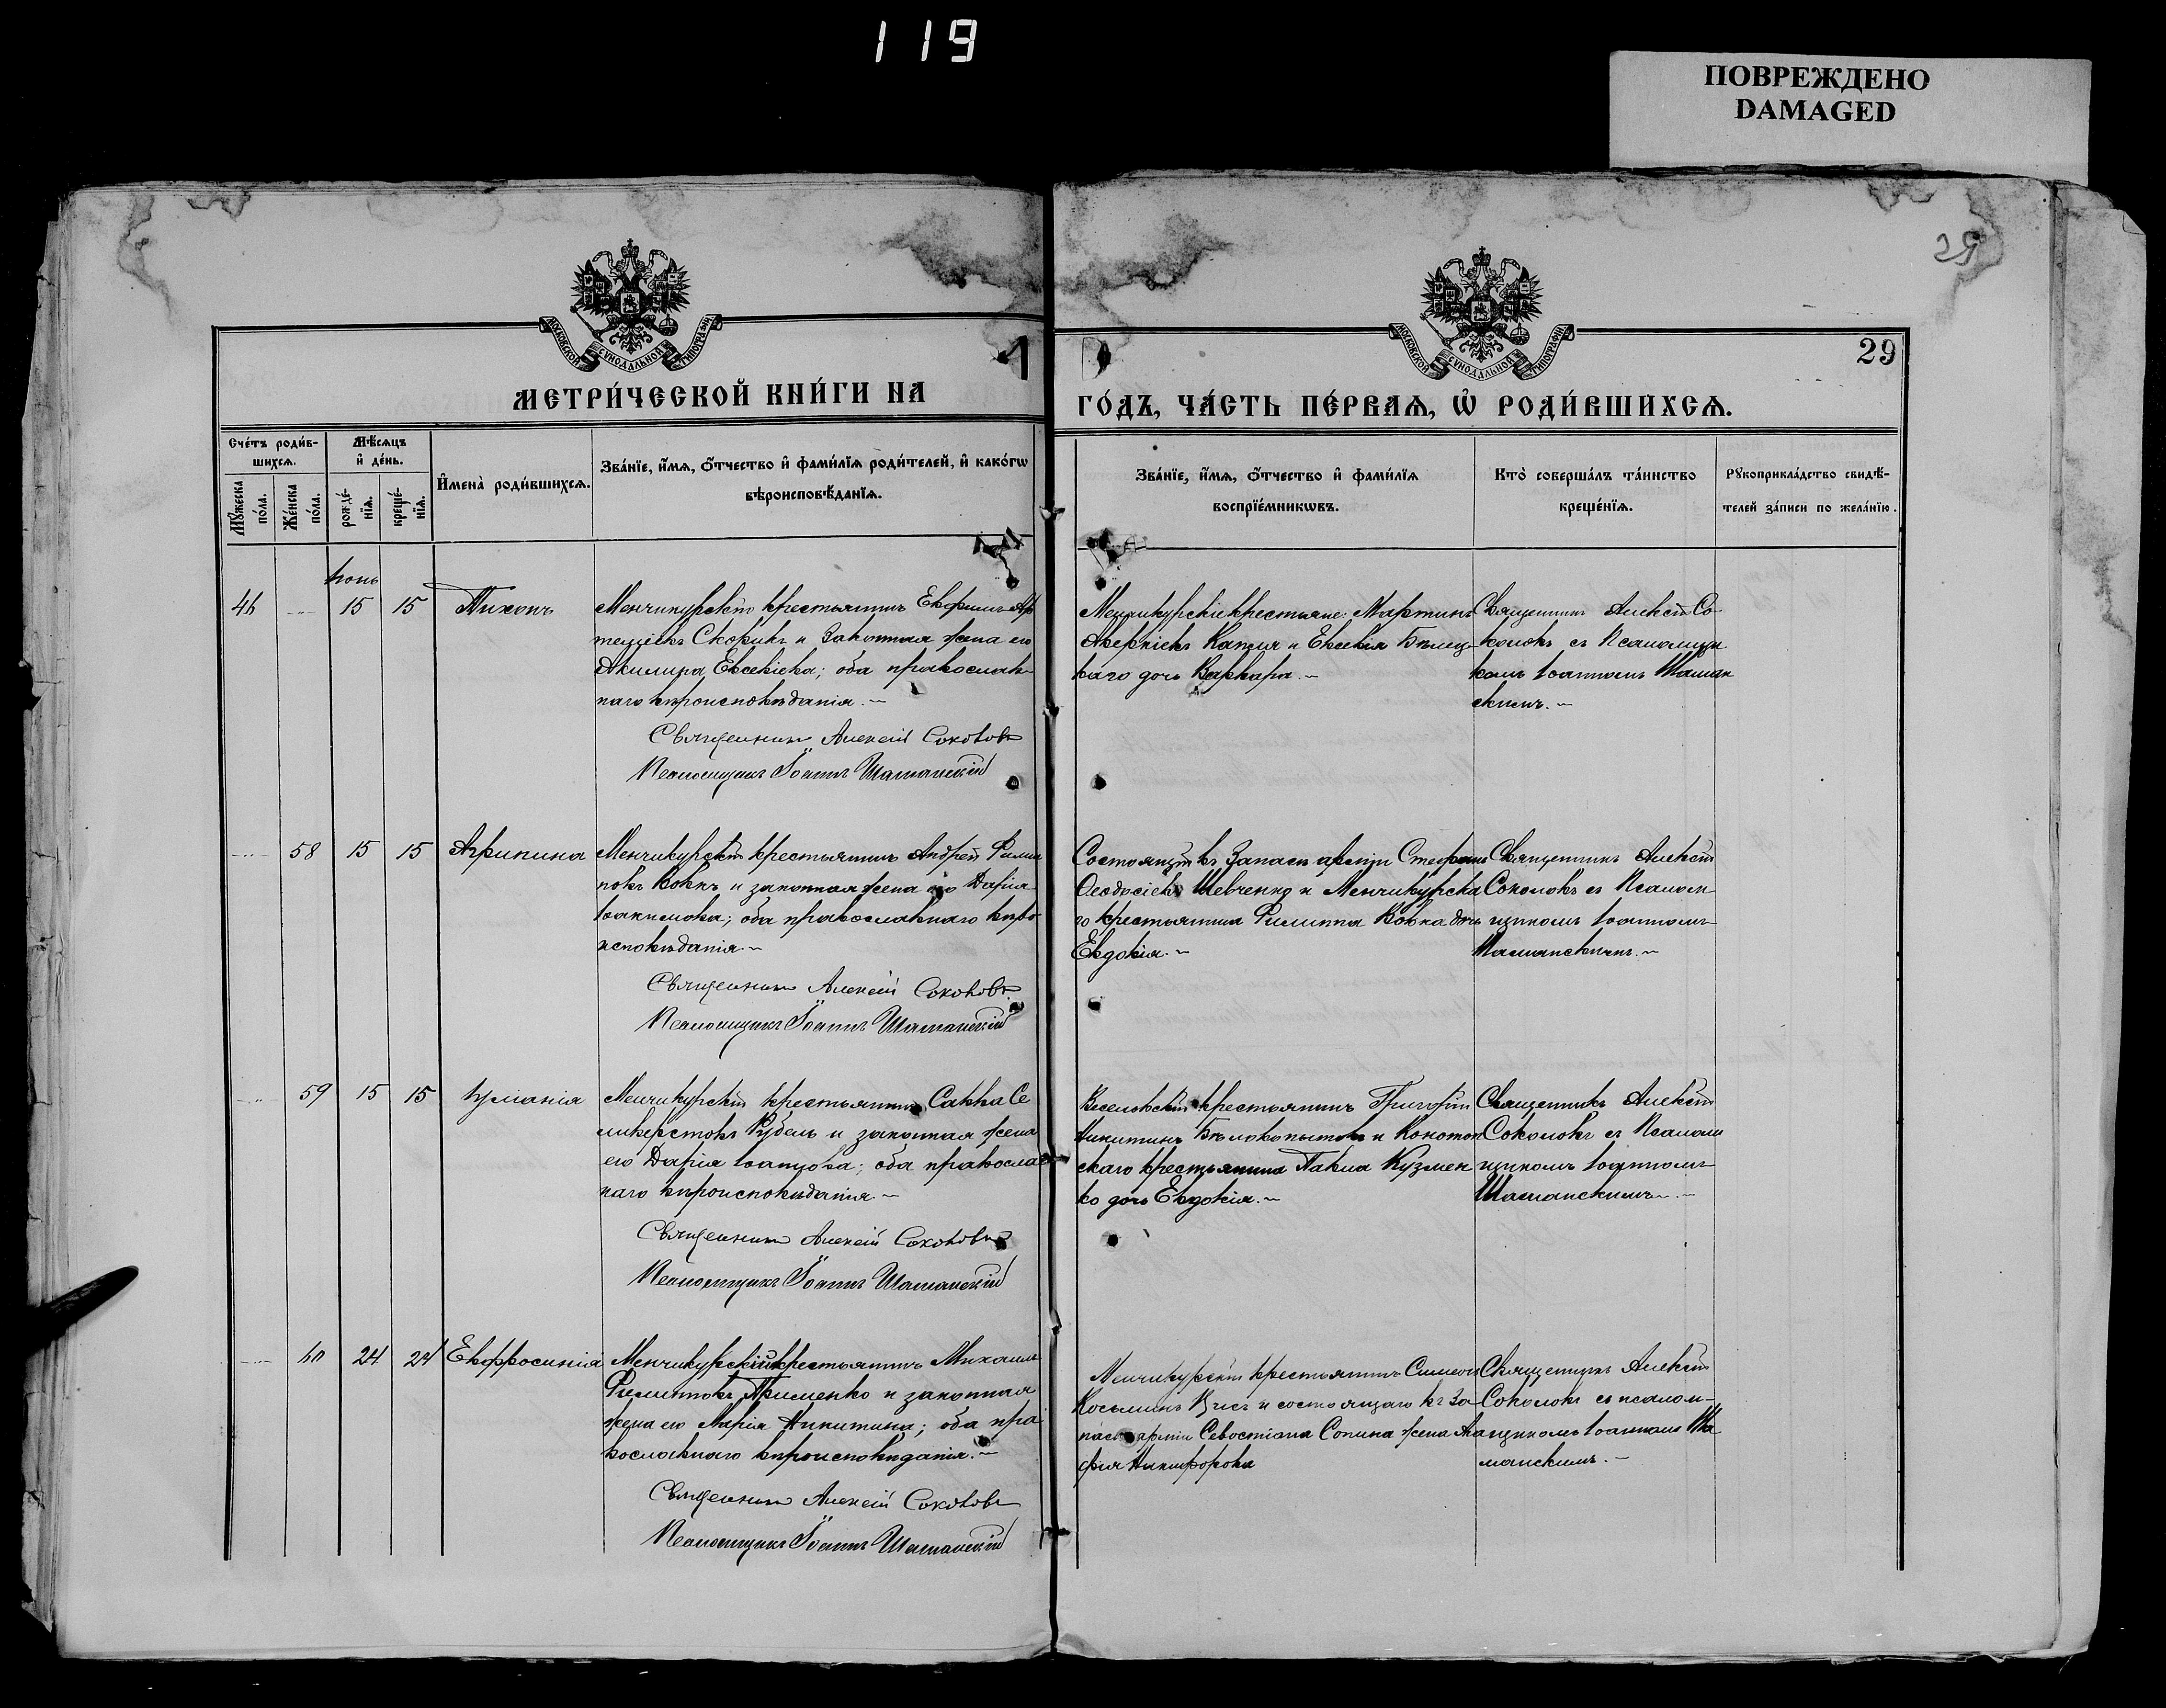 119
ПОВРЕЖДЕНО
DAMAGED
29
29
МОСКОВСКОЙ СѴНОДАЛЬНОЙ ТИПОГРАФІИ
МОСКОВСКОЙ СѴНОДАЛЬНОЙ ТИПОГРАФІИ
МЕТРИ́ЧЕСКОЙ КНИ́ГИ НА
ГО́ДЪ, ЧА́СТЬ ПЕ́РВАѦ, Ѽ РОДИ́ВШИХСѦ.
Сче́тъ роди́в-
шихсѧ.
Мѣ́сѧцъ
и҆ де́нь.
Мꙋ́жеска
по́ла.
Же́нска
по́ла.
рожде́-
нїѧ.
креще́-
нїѧ.
И҆мена̀ роди́вшихсѧ.
Зва́нїе, и҆́мѧ, ѻ҆́тчество и҆ фами́лїѧ роди́телей, и҆ како́гѡ
вѣроисповѣ́данїѧ.
Зва́нїе, и҆́мѧ, ѻ҆́тчество и҆ фами́лїѧ
воспрїе́мникѡвъ.
Кто̀ соверша́лъ та́инство
креще́нїѧ.
Рꙋкоприкла́дство свидѣ́-
телей за́писи по жела́нїю.
Іюнь
46 15 15 Тихонъ
Менчикурскій крестьянинъ Евфимъ Ар
теміевъ Скорикъ и законная жена его
Акилина Евсевіева; оба православ-
наго вѣроисповѣданія.
Священникъ Алексій Соколовъ
Псаломщикъ Іоаннъ Шаманскій
Менчикурскіе крестьяне: Мартинъ
Аверкіевъ Капля и Евсевія Бѣлец-
каго дочь Варвара.
Священникъ Алексій Со-
коловъ съ Псаломщи
комъ Іоанномъ Шаман
скимъ.
58 15 15 Агрипина
Менчикурскій крестьянинъ Андрей Филип
повъ Вовкъ и законная жена его Дарія
Іоакимова; оба православнаго вѣро-
исповѣданія.
Священникъ Алексій Соколовъ
Псаломщикъ Іоаннъ Шаманскій
Состоящій въ Запасѣ арміи Стефанъ
Ѳеодосіевъ Шевченко и Менчикурска
го крестьянина Филиппа Вовка дочь
Евдокія.
Священникъ Алексій
Соколовъ съ Псалом
щикомъ Іоанномъ
Шаманскимъ.
59 15 15 Іуліанія
Менчикурскій крестьянинъ Савва Се
ливерстовъ Рубель и законная жена
его Дарія Іоаннова; оба православ
наго вѣроисповѣданія.
Священникъ Алексій Соколовъ
Псаломщикъ Іоаннъ Шаманскій
Веселовскій крестьянинъ Григорій
Никитинъ Бѣлокопытовъ и Конотоп
скаго крестьянина Павла Кузмен
ко дочь Евдокія.
Священникъ Алексій
Соколовъ съ Псалом
щикомъ Іоанномъ
Шаманскимъ.
60 24 24 Евфросинія
Менчикурскій крестьянинъ Михаилъ
Филипповъ Применко и законная
жена его Марія Никитина; оба пра
вославнаго вѣроисповѣданія.
Священникъ Алексій Соколовъ
Псаломщикъ Іоаннъ Шаманскій
Менчикурскій крестьянинъ Симеонъ
Косьминъ и состоящаго въ За
пасѣ арміи Севостіана Сопина жена Ага
фія Никифорова
Священникъ Алексій
Соколовъ съ псалом-
щикомъ Іоанномъ Ша
манскимъ.